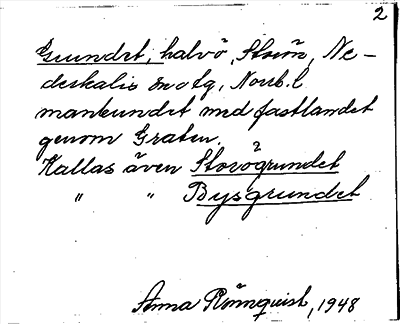 2
Grundet, halvö, Storön, Ne-
derkalix sn o tg, Norrb. l.
mankundet med fastlandet
genom Graten.
Kallas även Storögrundet
" " Bysgrundet
Anna Rönnquist, 1948